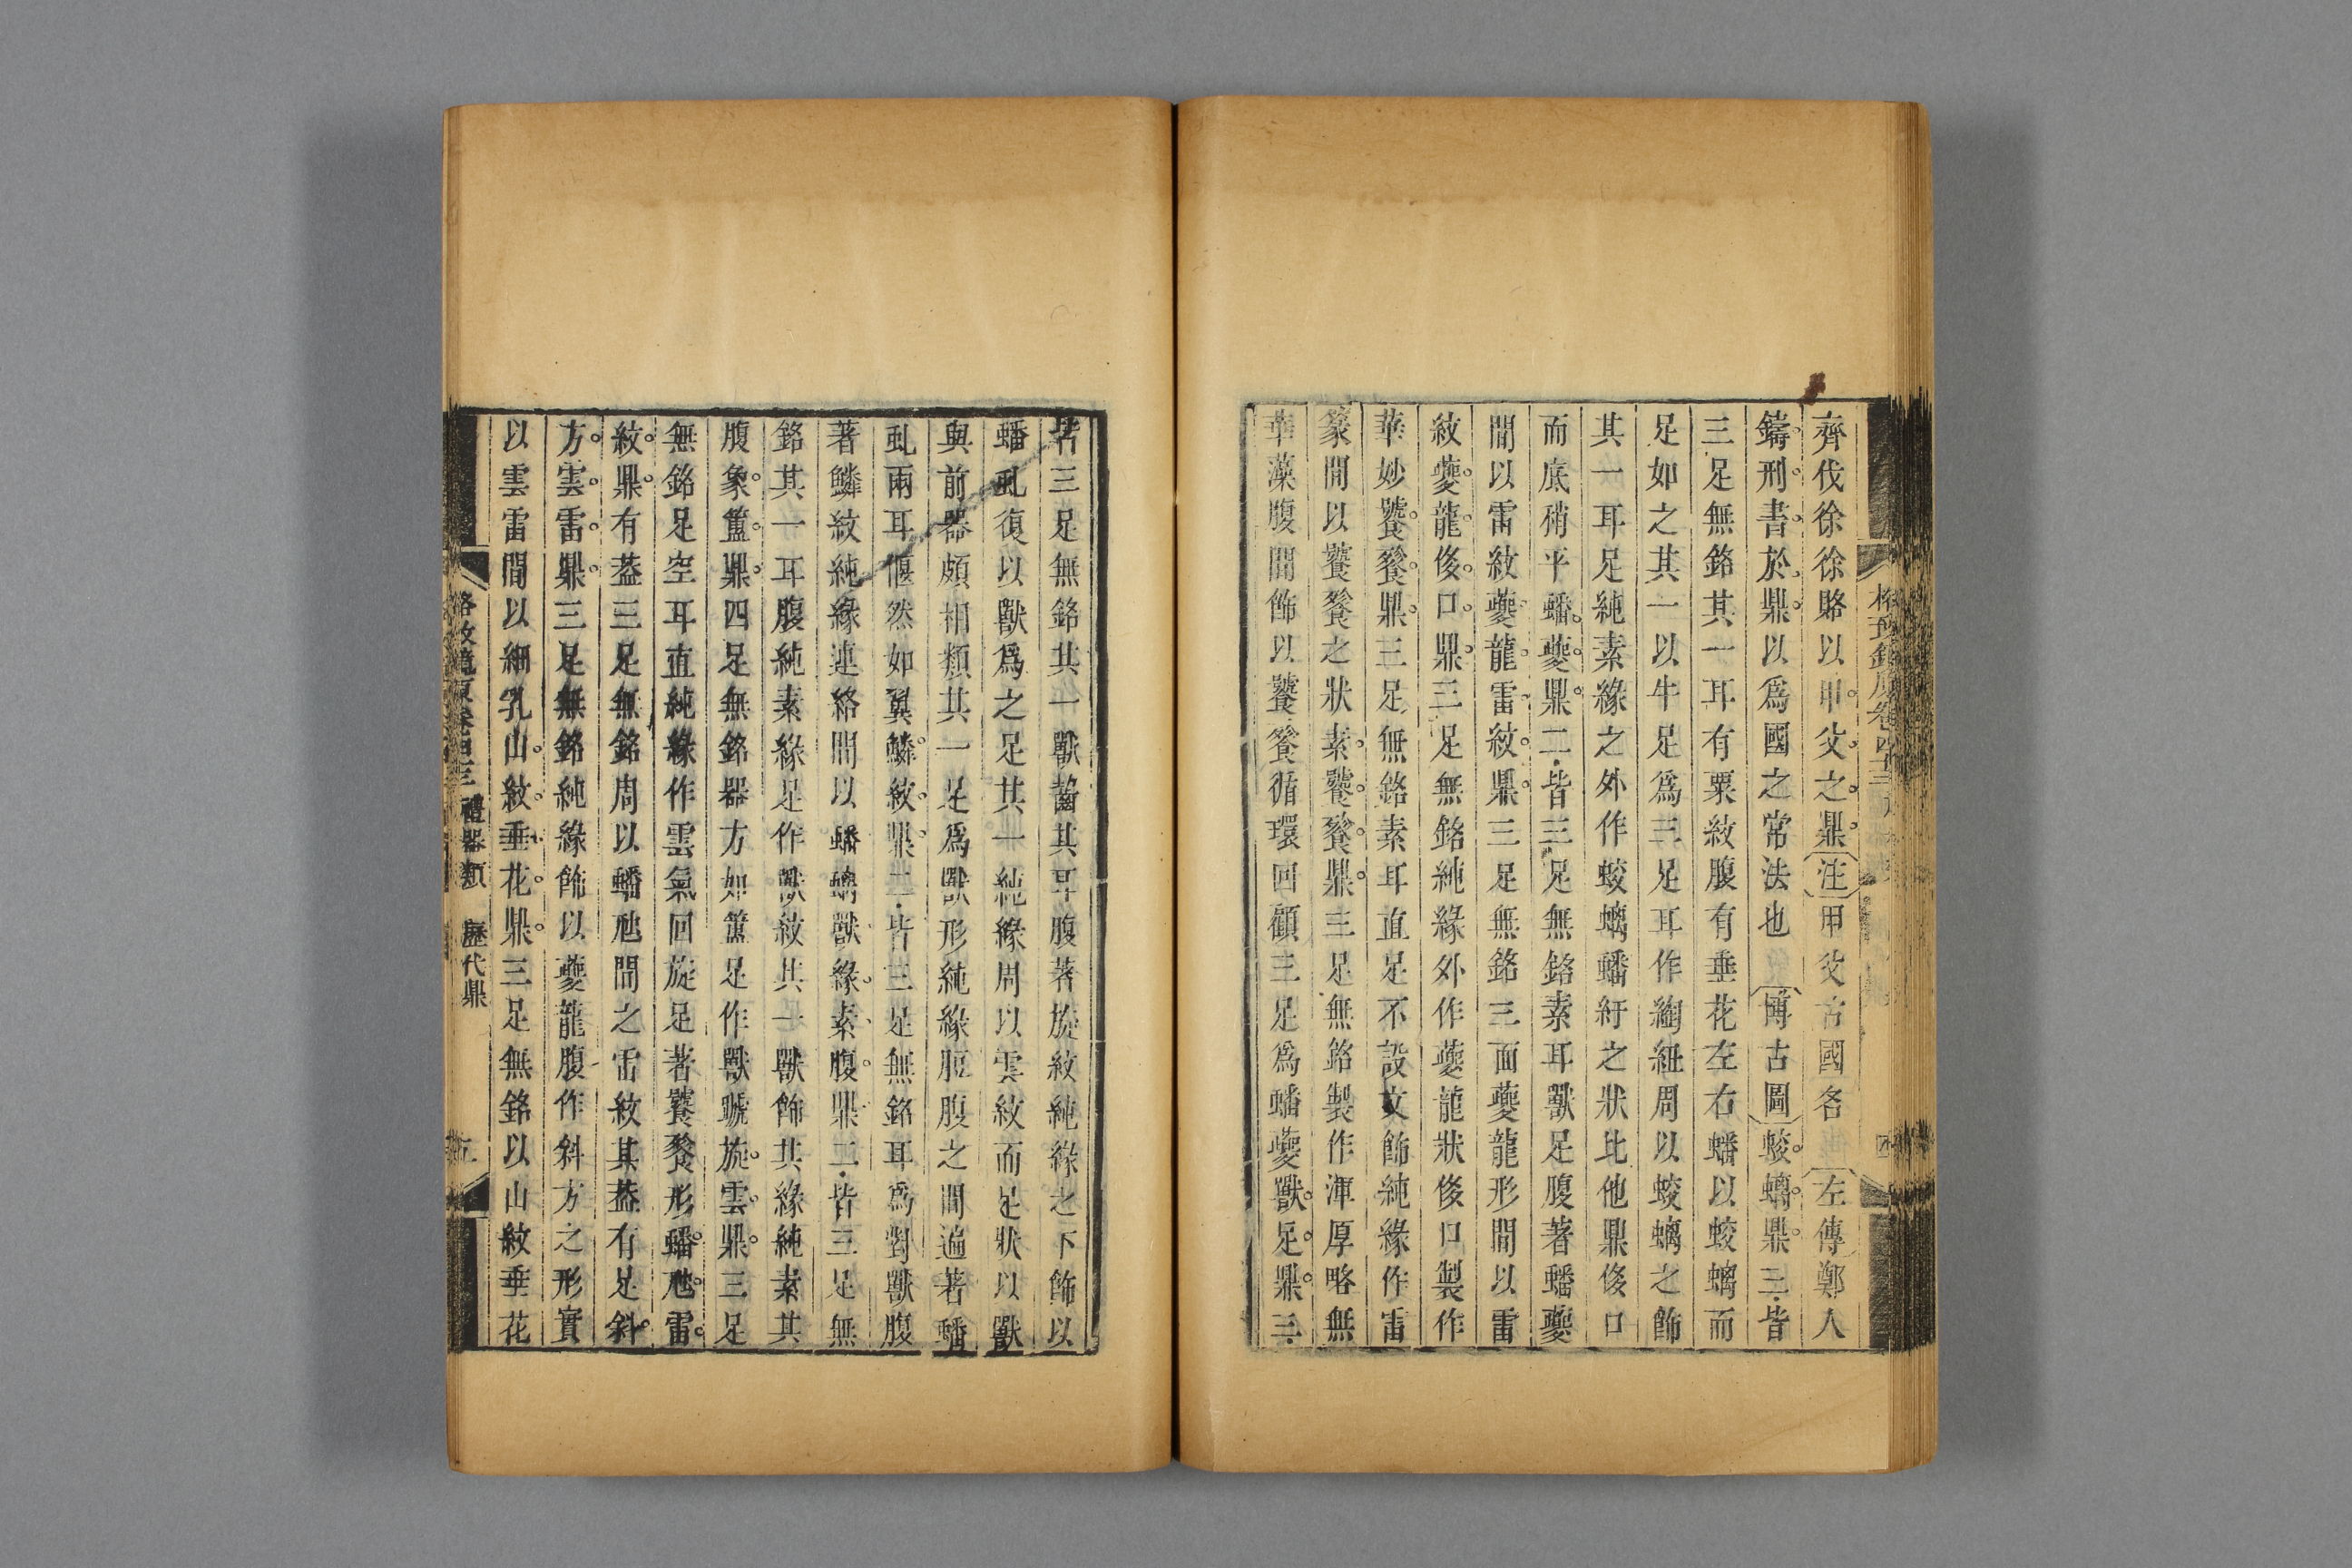 齊伐徐徐賂以甲父之鼎注甲父古國名左傳鄭人
鑄刑書於鼎以爲國之常法也博古圖蛟螭鼎三皆
三足無銘其一耳有粟紋腹有垂花左右蟠以蛟螭而
足如之其一以牛足爲三足耳作綯紐周以蛟螭之飾
其一耳足純素緣之外作蛟螭蟠紆之狀比他鼎侈口
而底稍平蟠夔鼎二皆三足無銘素耳獸足腹著蟠夔
間以雷紋夔龍雷紋鼎三足無銘三面夔龍形間以雷
紋夔龍侈口鼎三足無銘純緣外作夔龍狀侈口製作
華妙饕餮鼎三足無銘素耳直足不設文飾純緣作雷
篆間以饕餮之狀素饕餮鼎三足無銘製作渾厚略無
華藻腹間飾以饕餮循環回顧三足爲蟠夔獸足鼎三
皆三足無銘其一獸齧其耳腹著旋紋純緣之下飾以
蟠虬復以獸爲之足其一純緣周以雲紋而足狀以獸
與前器頗相類其一足爲獸形純緣脰腹之間遍著蟠
虬兩耳偃然如翼鱗紋鼎二皆三足無銘耳爲對獸腹
著鱗紋純緣連絡間以蟠螭獸緣素腹鼎二皆三足無
銘其一耳腹純素緣足作獸紋其一獸飾其緣純素其
腹象簠鼎四足無銘器方如簠足作獸虣旋雲鼎三足
無銘足空耳直純緣作雲氣回旋足著饕餮形蟠虺雷
紋鼎有葢三足無銘周以蟠虺間之雷紋其葢有足斜
方雲雷鼎三足無銘純緣飾以夔龍腹作斜方之形實
以雲雷間以細乳山紋垂花鼎三足無銘以山紋垂花
格致鏡原卷四十三 禮器類 歷代鼎 五